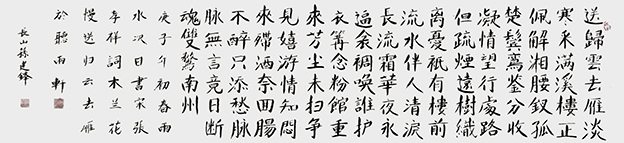 送歸雲去雁淡
寒采滿溪樓正
佩解湘腰釵孤
楚鬢鸞鑒分收
凝情望行處路
但疏煙遠樹織
離憂衹有樓前
流水伴人清淚
長流霜華夜永
逼衾裯喚誰護
衣篝念粉館重
來芳塵未掃争
見嬉游情知悶
來殢酒奈回腸
不醉只添愁脉
脉無言竟日斷
魂雙騖南州
庚子年初春雨
水次日書宋張
孝祥詞木兰花
慢送归云去雁
於聽雨軒
長山孫建鋒